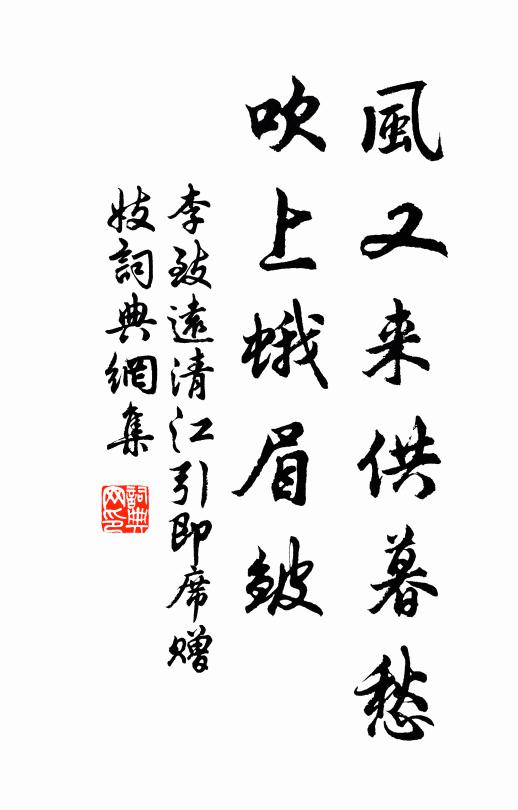 風又来供暮愁
吹上蛾眉皺
李致遠清江引即席贈
妓詞典網集
詞典
网印